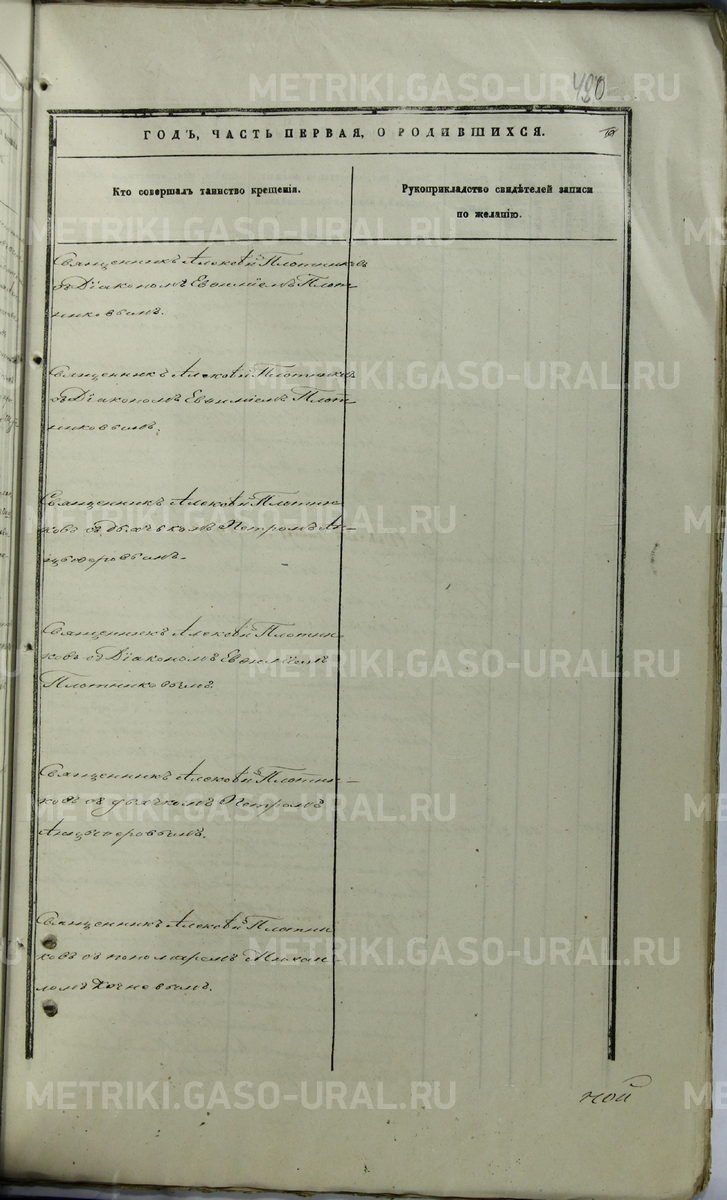 480
ГОДЪ, ЧАСТЬ ПЕРВАЯ, О РОДИВШИХСЯ.
Кто совершалъ таинство крещенія.
Рукоприкладство свидѣтелей записи
по желанію.
Священникъ Алексѣй Плотниковъ
съ Діакономъ Евѳиміемъ Плот
никовымъ.
Священникъ Алексѣй Плотниковъ
съ Діакономъ Евѳиміемъ Плот
никовымъ.
Священникъ Алексѣй Плотни
ковъ съ дьячькомъ Петромъ Ан-
цыфоровымъ.
Священникъ Алексѣй Плотни
ковъ съ Діакономъ Евѳиміемъ
Плотниковымъ.
Священникъ Алексѣй Плотни-
ковъ съ дьячкомъ Петромъ
Анцыферовымъ.
Священникъ Алексѣй Плотни
ковъ съ пономаремъ Михаи
ломъ
ной
METRIKI.GASO-URAL.RU